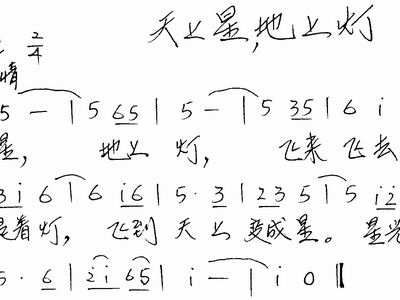 天上星,地上灯
2/4
情
5 — | 5 65 | 5 — | 5 35 | 6 i
星, 地上 灯, 飞来 飞去
3 i 6 | 6 i6 | 5· 3 | 235 | 5 i2
是着灯, 飞到 天上 变成星。 星光
5· 6 | 2i 65 | i — | i 0 ‖